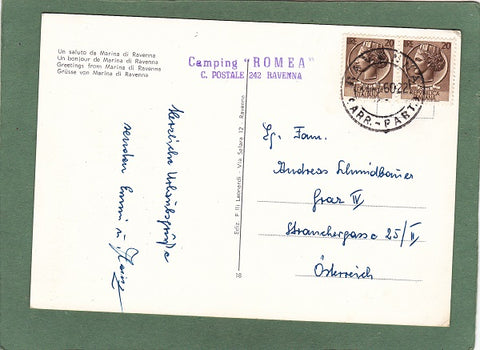 Un saluto da Marina di Ravenna
Un bonjour de Marina di Ravenna
Greetings from Marina di Ravenna
Grüsse von Marina di Ravenna
Camping "ROMEA"
C. POSTALE 242 RAVENNA
20
20
ARR.-PART.
Herzliche Urlaubsgrüße
senden Emmi u. Heinz
Ediz. F.lli Lannardi - Via Salara 12 - Ravenna
Fam.
Andreas Schmidbauer
Graz IV
25/II
Österreich